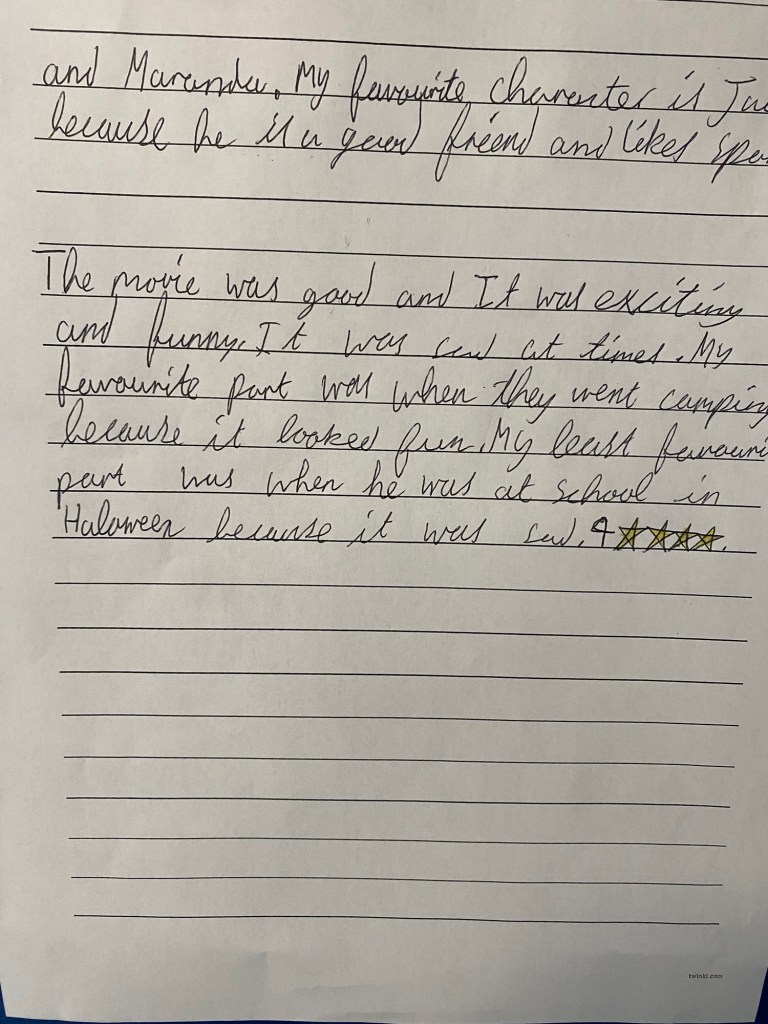 and Maranda. My favourite charecter is
because he is a good friend and likes
The movie was good and It was exciting
and funny. It was sad at times. My
favourite part was when they went camping
because it looked fun. My least
part was when he was at school in
Haloween because it was sad. 4 ★★★★.
twinkl.com